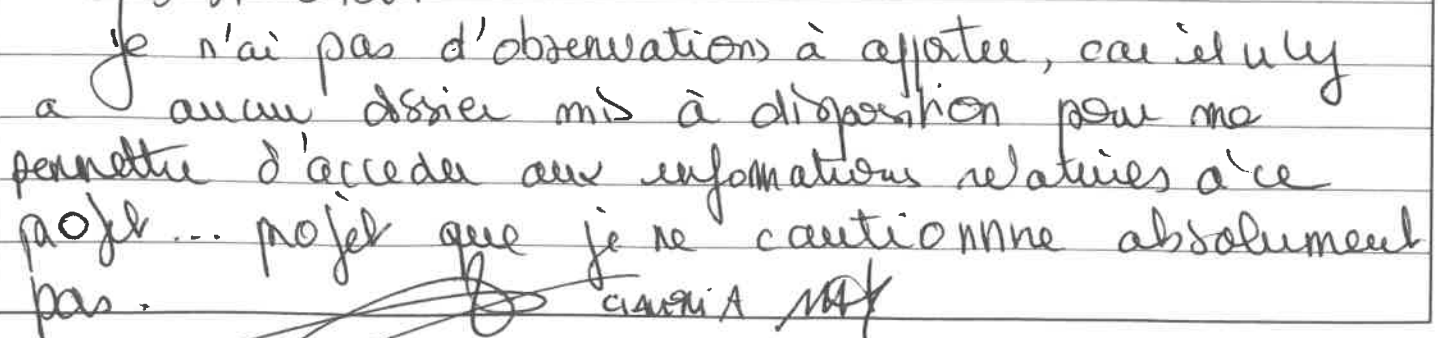 Je n'ai pas d'observations à apporter, car il n'y
a aucun dossier mis à disposition pour me
permettre d'acceder aux informations relatives à ce
projet... projet que je ne cautionne absolument
pas.